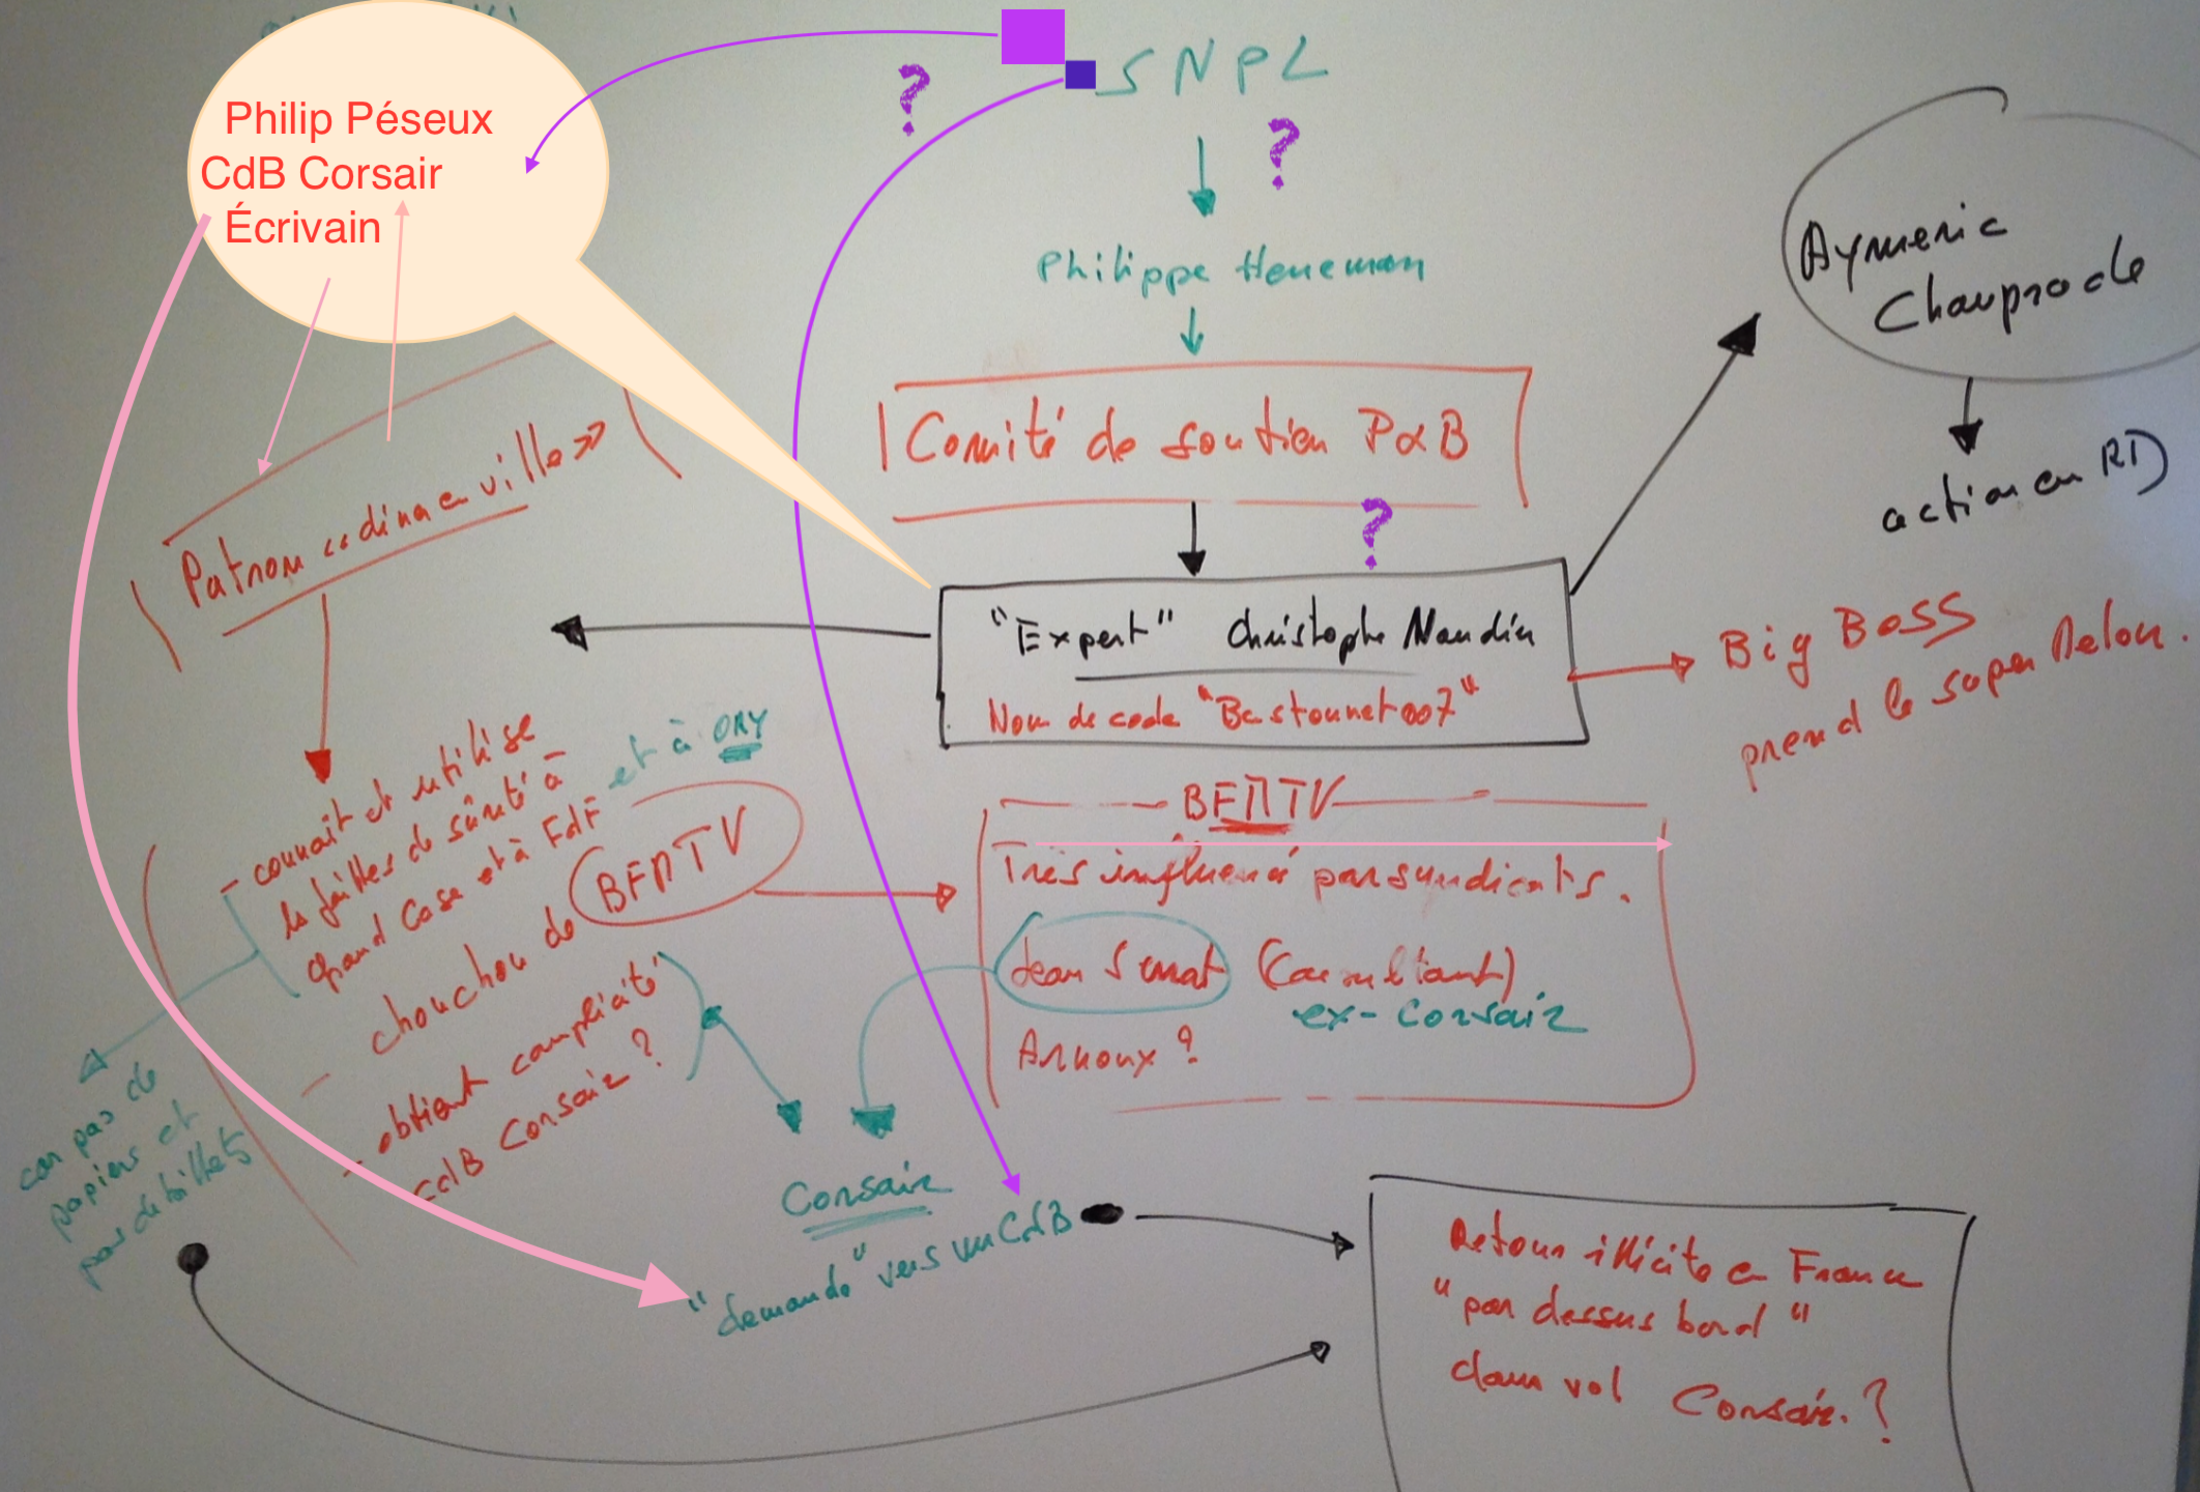 Philip Péseux
CdB Corsair
Écrivain
?
SNPL
?
Philippe Heneman
Comité de soutien P&B
?
"Expert" Christophe Naudin
Nom de code "Bastounet007"
Aymeric
Chauprade
action en RD
Big Boss
prend le super Melon.
Patron «dina en ville»
- connait et utilise
les failles de sûreté à
Grand Case et à FdF
et à ORY
- chouchou de BFMTV
- obtient complicité
CdB Corsair ?
car pas de
papiers et
pas de billets
BFMTV
Très influencé par syndicats.
Jean Serrat (Consultant)
ex-Corsair
Arnoux ?
Corsair
"demande" vers un CdB
Retour illicite en France
"par dessus bord"
dans vol Corsair. ?